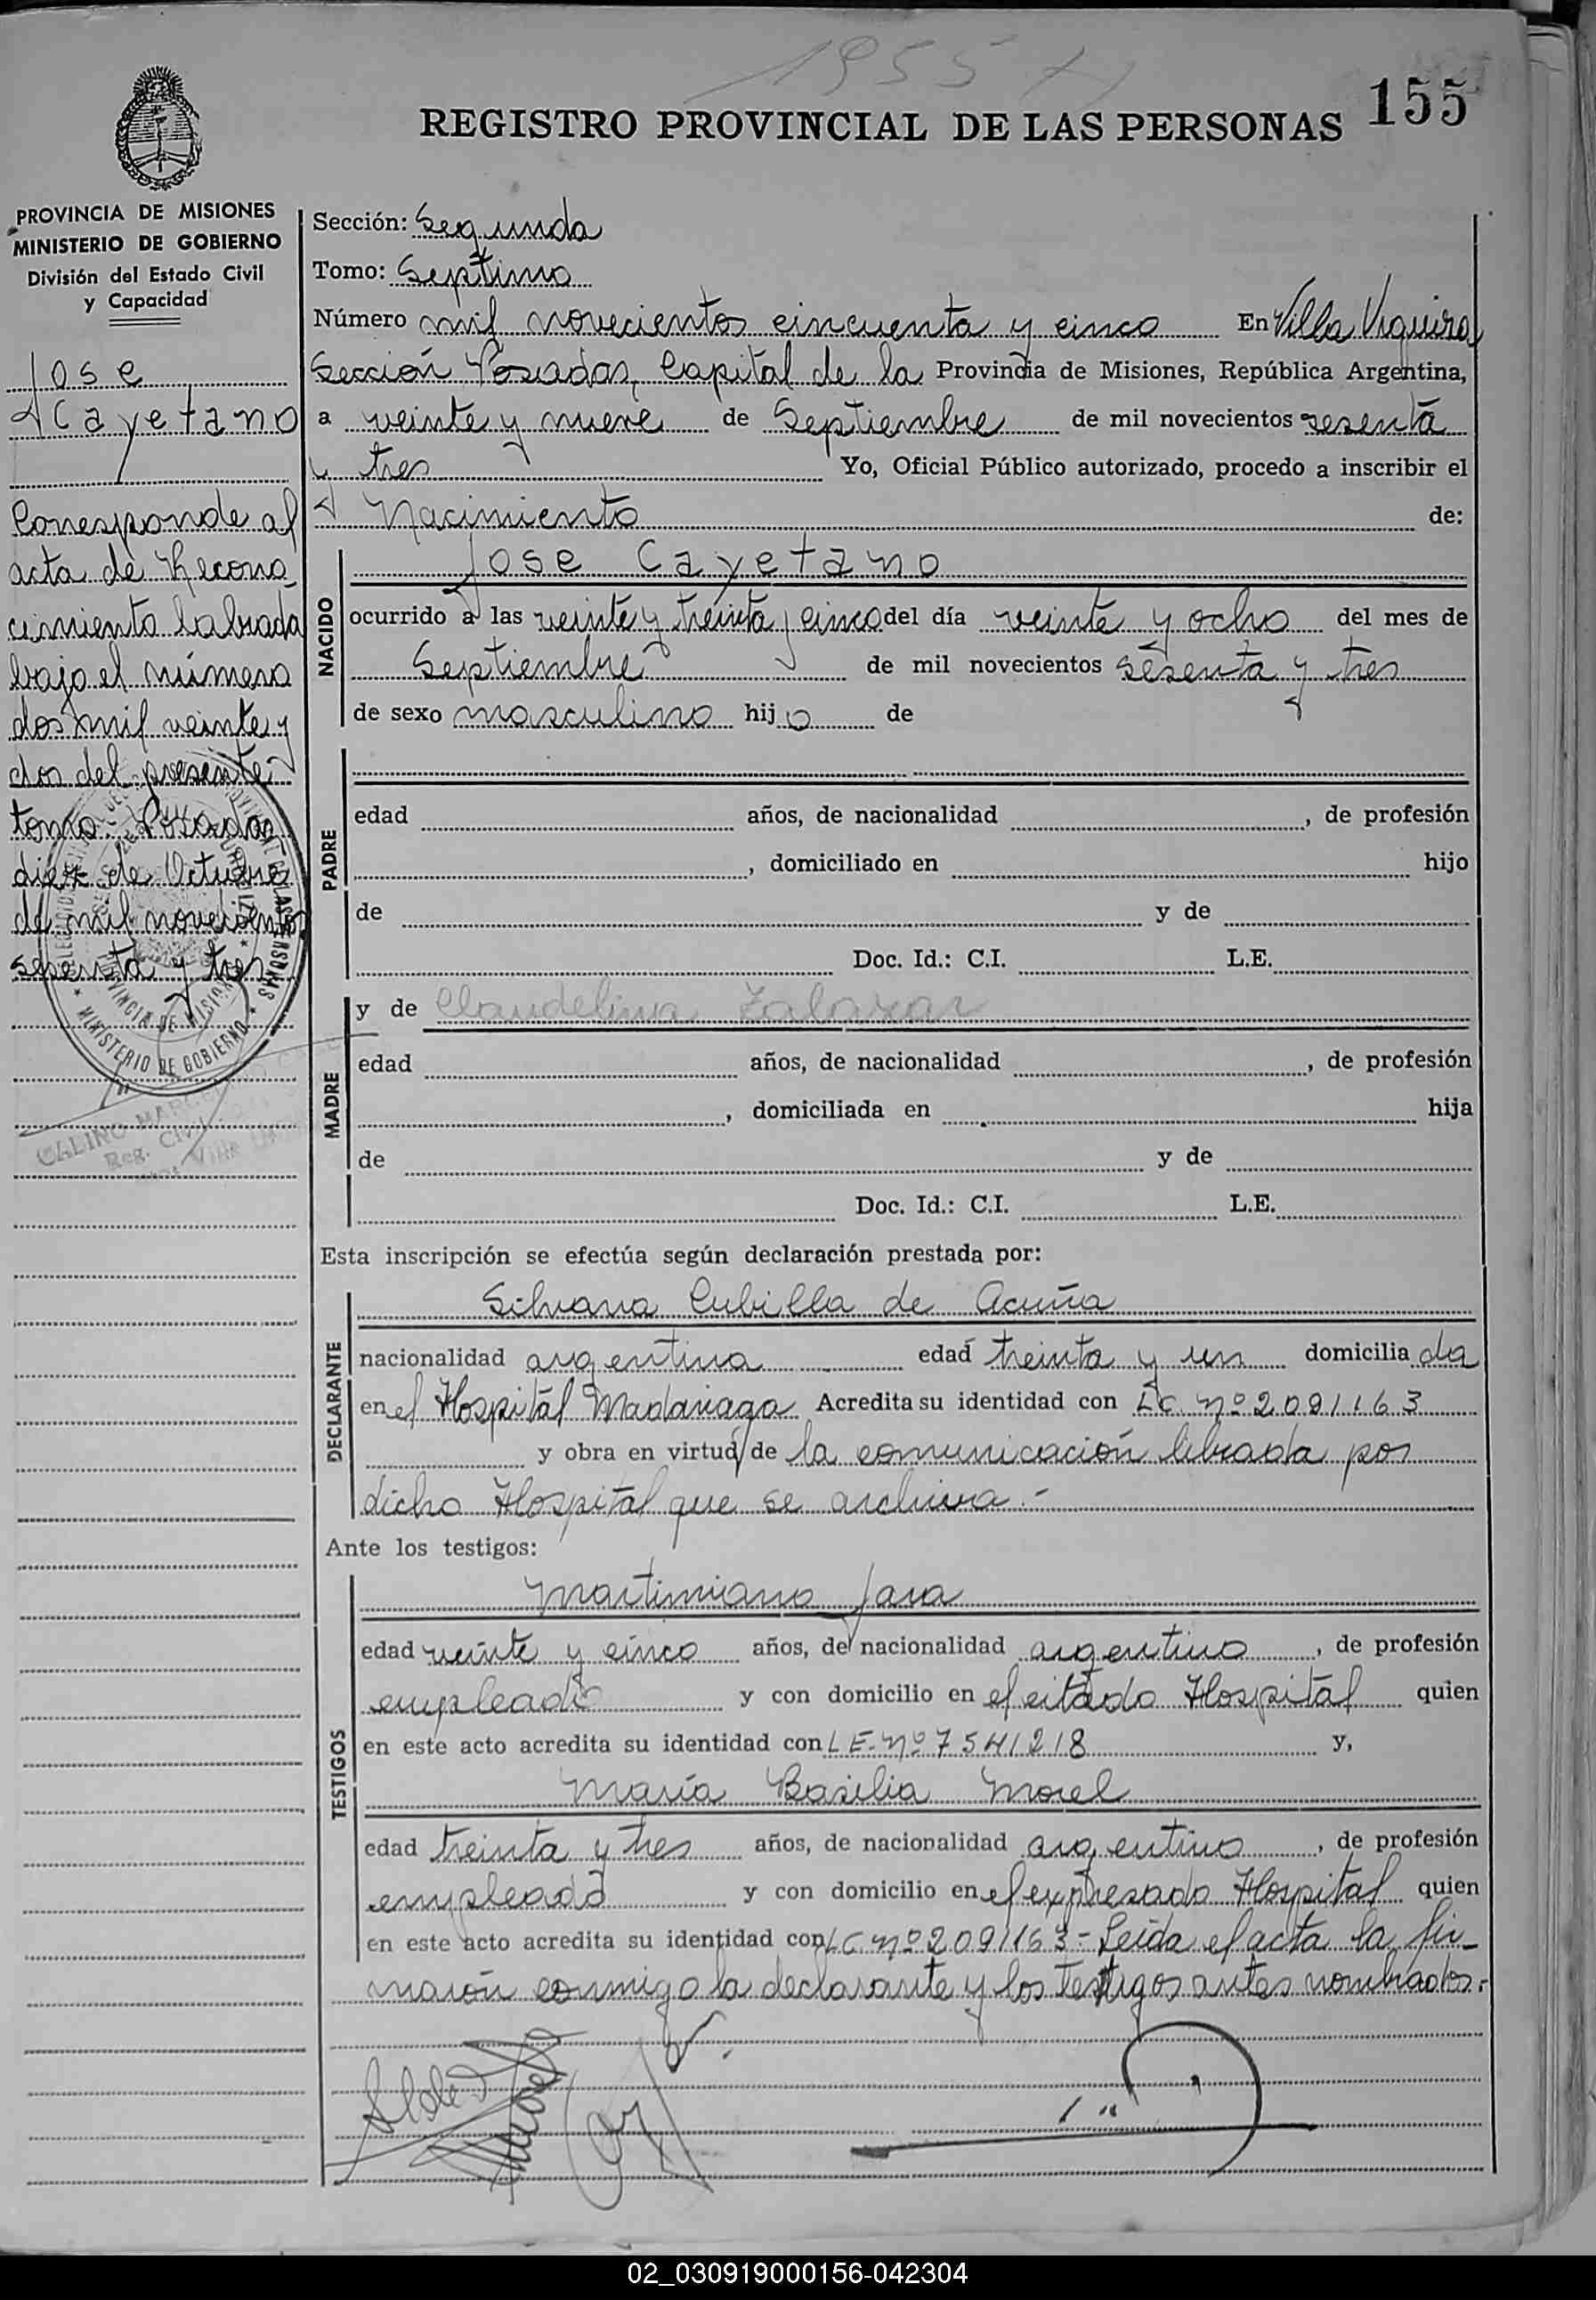 1955
155
REGISTRO PROVINCIAL DE LAS PERSONAS
PROVINCIA DE MISIONES
MINISTERIO DE GOBIERNO
División del Estado Civil
y Capacidad
Jose
Cayetano
Corresponde al
acta de Recono
cimiento labrada
bajo el número
dos mil veinte y
dos del presente
tomo - Posadas
diez de Octubre
de mil novecientos
sesenta y tres
MINISTERIO DE GOBIERNO
Sección: Segunda
Tomo: Septimo
Número mil novecientos cincuenta y cinco En Villa Urquiza
Sección Posadas, Capital de la Provincia de Misiones, República Argentina,
a veinte y nueve de Septiembre de mil novecientos sesenta
y tres Yo, Oficial Público autorizado, procedo a inscribir el
Nacimiento de:
NACIDO
Jose Cayetano
ocurrido a las veinte y treinta y cinco del día veinte y ocho del mes de
Septiembre de mil novecientos sesenta y tres
de sexo masculino hijo de
PADRE
edad años, de nacionalidad , de profesión
, domiciliado en hijo
de y de
Doc. Id.: C.I. L.E.
MADRE
y de Claudelina Zalazar
edad años, de nacionalidad , de profesión
, domiciliada en hija
de y de
Doc. Id.: C.I. L.E.
Esta inscripción se efectúa según declaración prestada por:
DECLARANTE
Silvana Cubilla de Acuña
nacionalidad argentina edad treinta y un domiciliada
en el Hospital Madariaga Acredita su identidad con LC. Nº 2091163
y obra en virtud de la comunicación librada por
dicho Hospital que se archiva.-
Ante los testigos:
TESTIGOS
Martimiano Jara
edad veinte y cinco años, de nacionalidad argentino, de profesión
empleado y con domicilio en el citado Hospital quien
en este acto acredita su identidad con LE. Nº 7541218 y,
María Basilia Morel
edad treinta y tres años, de nacionalidad argentino, de profesión
empleada y con domicilio en el expresado Hospital quien
en este acto acredita su identidad con LC Nº 2091163- Leída el acta la fir-
marón conmigo la declarante y los testigos antes nombrados.-
02_030919000156-042304